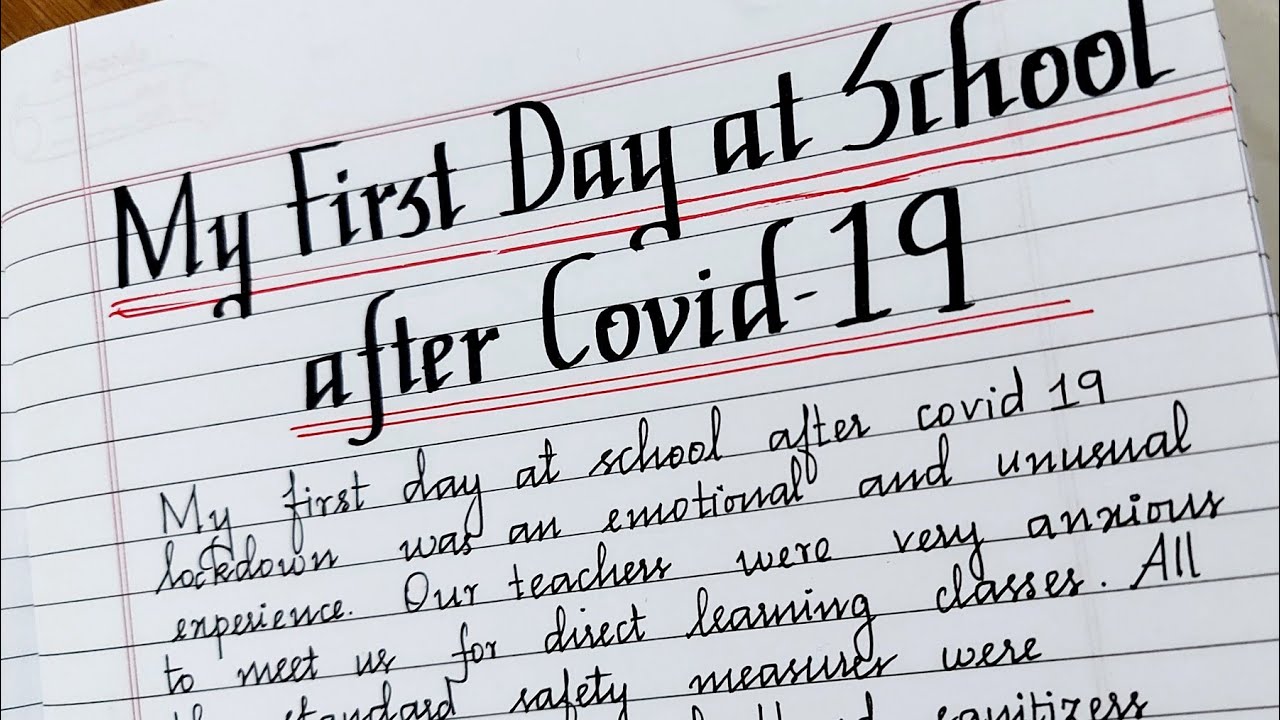 My First Day at School
after Covid-19
My first day at school after covid 19
lockdown was an emotional and unusual
experience. Our teachers were very anxious
to meet us for direct learning classes. All
standard safety measures were
sanitizers